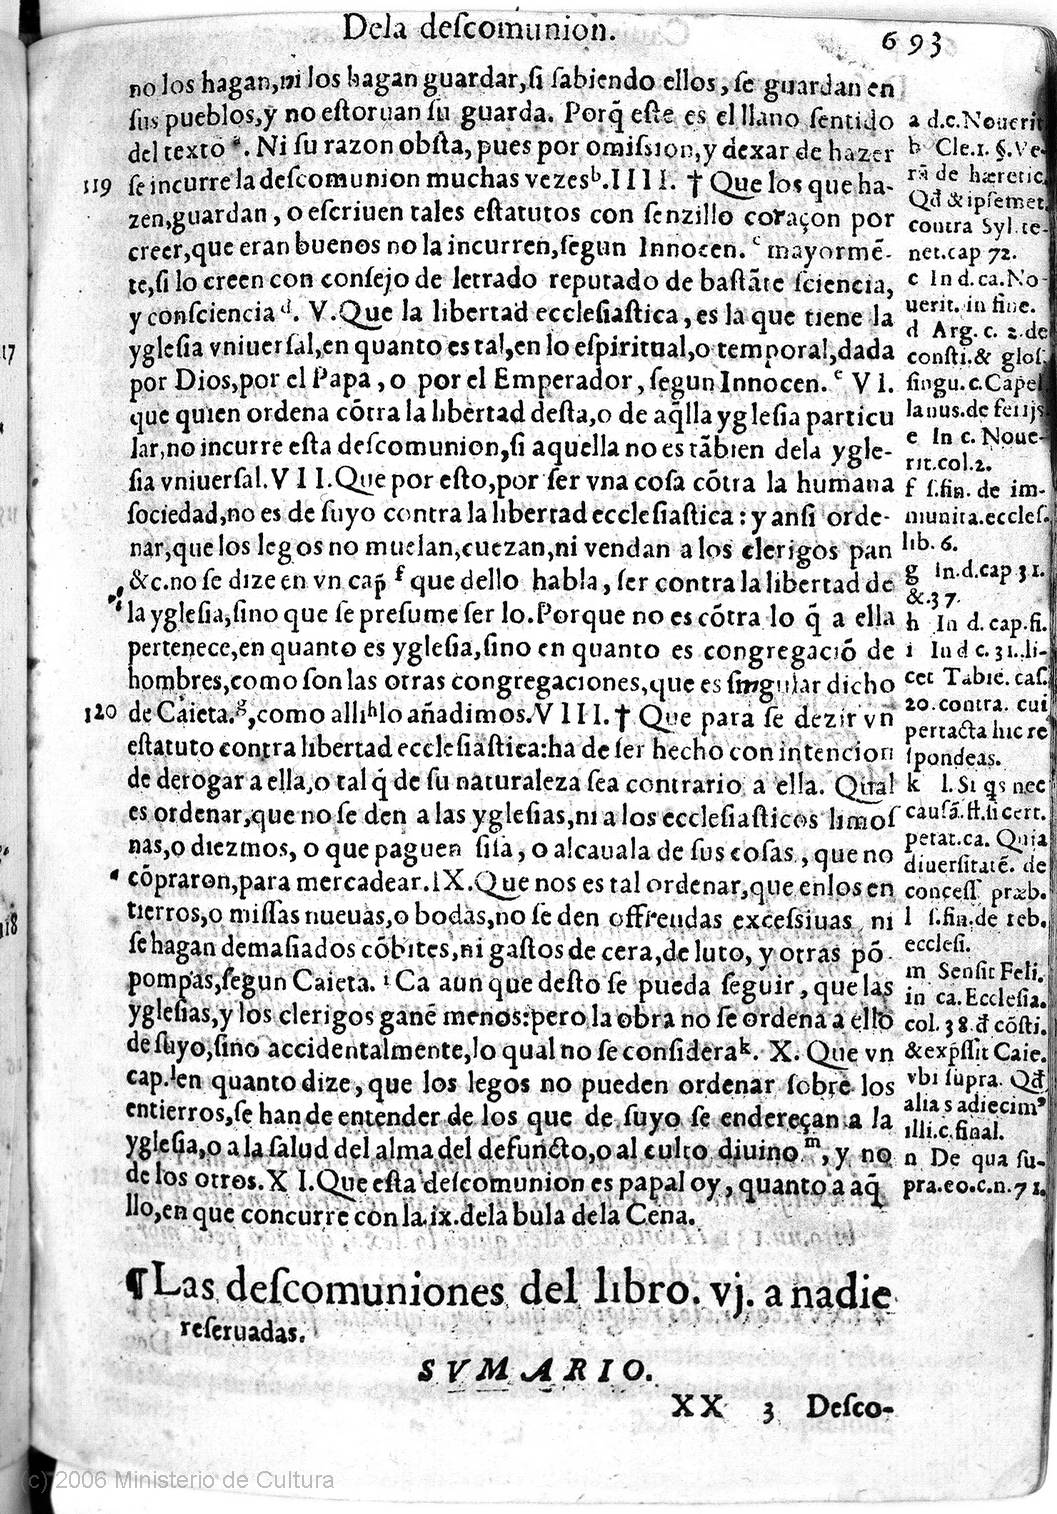 Dela deſcomunion.
693
no los hagan,ni los hagan guardar,ſi ſabiendo ellos, ſe guardan en
ſus pueblos,y no eſtoruan ſu guarda. Porq̃ eſte es el llano ſentido
del texto ª. Ni ſu razon obſta, pues por omiſsion,y dexar de hazer
119 ſe incurre la deſcomunion muchas vezes ᵇ.IIII. † Que los que ha-
zen,guardan, o eſcriuen tales eſtatutos con ſenzillo coraçon por
creer,que eran buenos no la incurren,ſegun Innocen. ᶜ mayormẽ-
te,ſi lo creen con conſejo de letrado reputado de baſtãte ſciencia,
y conſciencia ᵈ. V.Que la libertad eccleſiaſtica, es la que tiene la
ygleſia vniuerſal,en quanto es tal,en lo eſpiritual,o temporal,dada
por Dios,por el Papa, o por el Emperador, ſegun Innocen. ᵉ VI.
que quien ordena cõtra la libertad deſta,o de aq̃lla ygleſia particu
lar,no incurre eſta deſcomunion,ſi aquella no es tãbien dela ygle-
ſia vniuerſal.VII.Que por eſto,por ſer vna coſa cõtra la humana
ſociedad,no es de ſuyo contra la libertad eccleſiaſtica: y anſi orde-
nar,que los legos no muelan,cuezan,ni vendan a los clerigos pan
&c.no ſe dize en vn cap̃ ᶠ que dello habla, ſer contra la libertad de
la ygleſia,ſino que ſe preſume ſer lo.Porque no es cõtra lo q̃ a ella
pertenece,en quanto es ygleſia,ſino en quanto es congregaciõ de
hombres,como ſon las otras congregaciones,que es ſingular dicho
120 de Caieta.ᵍ,como alli ʰ lo añadimos.VIII. † Que para ſe dezir vn
eſtatuto contra libertad eccleſiaſtica:ha de ſer hecho con intencion
de derogar a ella,o tal q̃ de ſu naturaleza ſea contrario a ella. Qual
es ordenar,que no ſe den a las ygleſias,ni a los eccleſiaſticos limoſ
nas,o diezmos, o que paguen ſiſa, o alcauala de ſus coſas, que no
cõpraron,para mercadear.IX.Que nos es tal ordenar,que en los en
tierros,o miſſas nueuas,o bodas,no ſe den offrendas exceſsiuas ni
ſe hagan demaſiados cõbites,ni gaſtos de cera,de luto, y otras põ
pompas,ſegun Caieta. ⁱ Ca aun que deſto ſe pueda ſeguir, que las
ygleſias,y los clerigos ganẽ menos:pero la obra no ſe ordena a ello
de ſuyo,ſino accidentalmente,lo qual no ſe conſidera ᵏ. X. Que vn
cap. ˡ en quanto dize, que los legos no pueden ordenar ſobre los
entierros,ſe han de entender de los que de ſuyo ſe endereçan a la
ygleſia,o a la ſalud del alma del defuncto,o al culto diuino ᵐ, y no
de los otros.XI.Que eſta deſcomunion es papal oy, quanto a aq̃
llo,en que concurre con la.ix.dela bula dela Cena.
a d.c.Nouerit
b Cle.1. §.Ve-
rã de hæretic.
Qđ & ipſemet.
contra Syl. te-
net.cap 72.
c In d.ca.No-
uerit. in fine.
d Arg. c. 2.de
conſti.& gloſ.
ſingu.c.Capel
lanus.de ferijs
e In c. Noue-
rit.col.2.
f ſ.fin. de im-
munita.eccleſ.
lib. 6.
g In.d.cap 31.
&.37.
h In d. cap.fi.
i In d c. 31..li-
cet Tabie. caſ.
20.contra. cui
pertacta huc re
ſpondeas.
k l.Si qs nec
cauſã.ff.ſi cert.
petat.ca. Quia
diuerſitatẽ. de
conceſſ præb.
l ſ.fin.de reb.
eccleſi.
m Senſit Feli.
in ca.Eccleſia.
col.38.đ cõſti.
&exp̃ſſit Caie.
vbi ſupra. Qđ
alias adiecim⁹
illi.c.final.
n De qua ſu-
pra.eo.c.n.71.
¶Las deſcomuniones del libro. vj. a nadie
reſeruadas.
SVMARIO.
XX 3 Deſco-
17
118
(c) 2006 Ministerio de Cultura